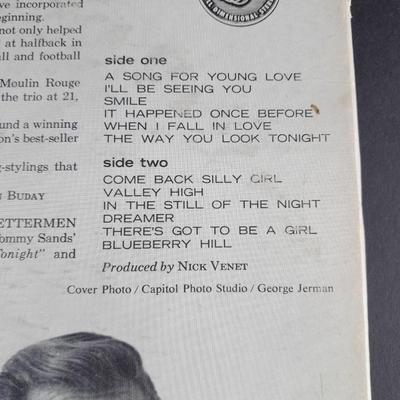 ve incorporated
ginning.
not only helped
at halfback in
ll and football
Moulin Rouge
the trio at 21,
und a winning
on's best-seller
g-stylings that
N BUDAY
ETTERMEN
ommy Sands'
onight" and
side one
A SONG FOR YOUNG LOVE
I'LL BE SEEING YOU
SMILE
IT HAPPENED ONCE BEFORE
WHEN I FALL IN LOVE
THE WAY YOU LOOK TONIGHT
side two
COME BACK SILLY GIRL
VALLEY HIGH
IN THE STILL OF THE NIGHT
DREAMER
THERE'S GOT TO BE A GIRL
BLUEBERRY HILL
Produced by NICK VENET
Cover Photo / Capitol Photo Studio / George Jerman